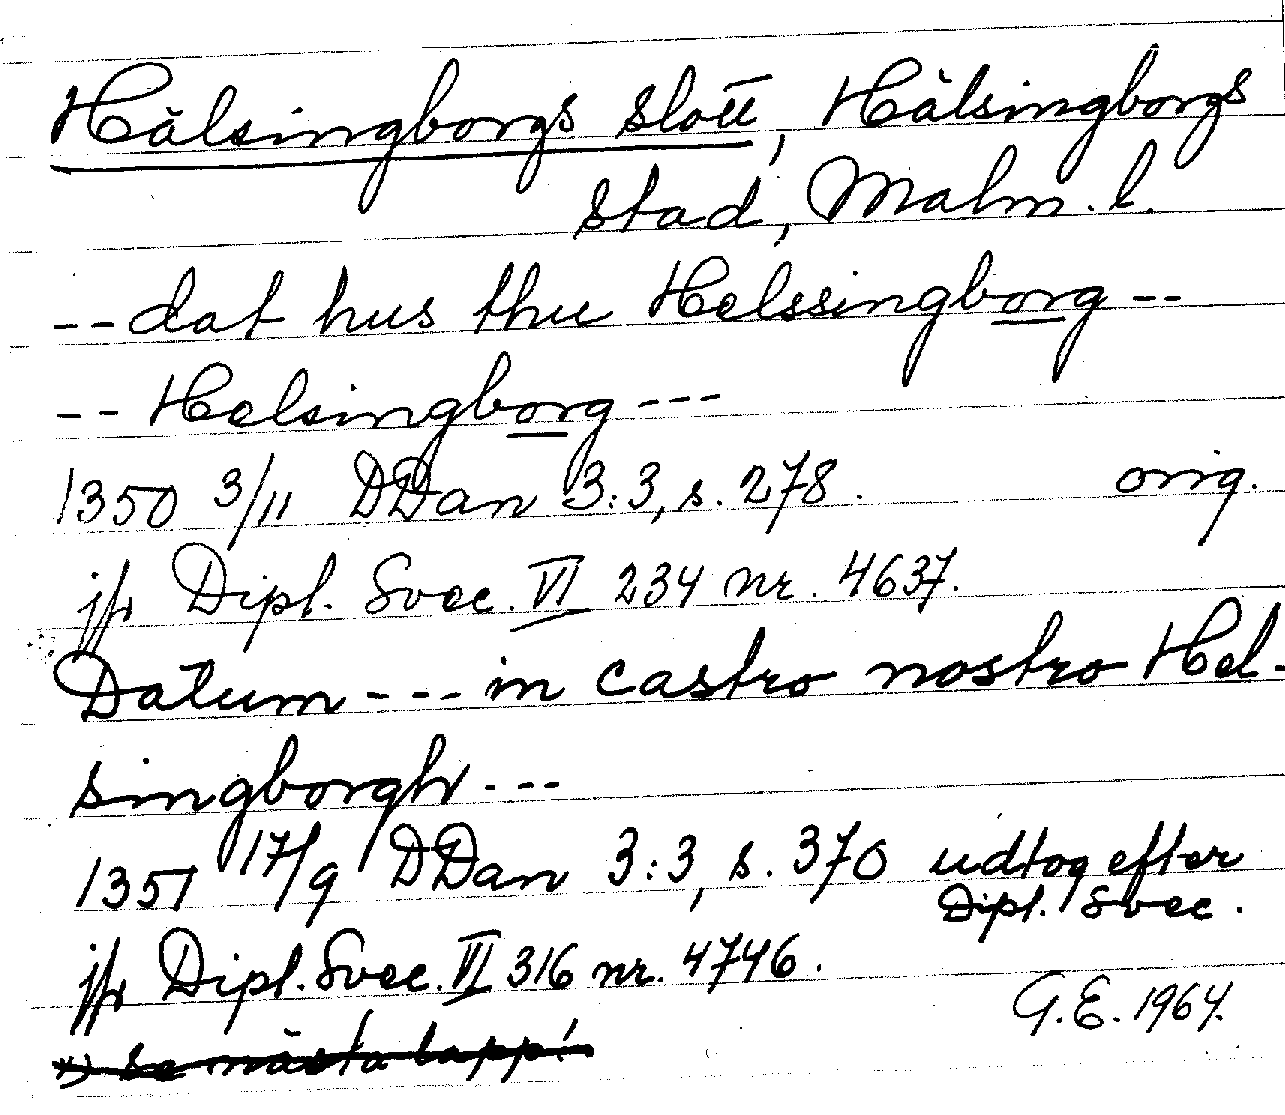 Hälsingborgs slott, Hälsingborgs
stad, Malm. l.
-- dat hus thu Helssingborg --
-- Helsingborg ---
1350 3/11 DDan 3:3, s. 278. orig.
jfr Dipl. Svec. VI 234 nr. 4637.
Datum --- in castro nostro Hel-
singborgh ---
1351 17/9 DDan 3:3, s. 370 udtog efter
Dipl. Svec.
jfr Dipl. Svec. VI 316 nr. 4746.
G.E. 1964.
*) Se nästa lapp!